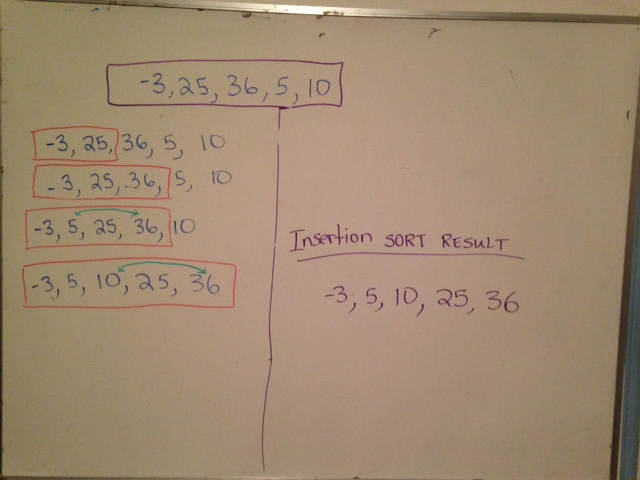 -3, 25, 36, 5, 10
-3, 25, 36, 5, 10
-3, 25, 36, 5, 10
-3, 5, 25, 36, 10
-3, 5, 10, 25, 36
Insertion SORT RESULT
-3, 5, 10, 25, 36